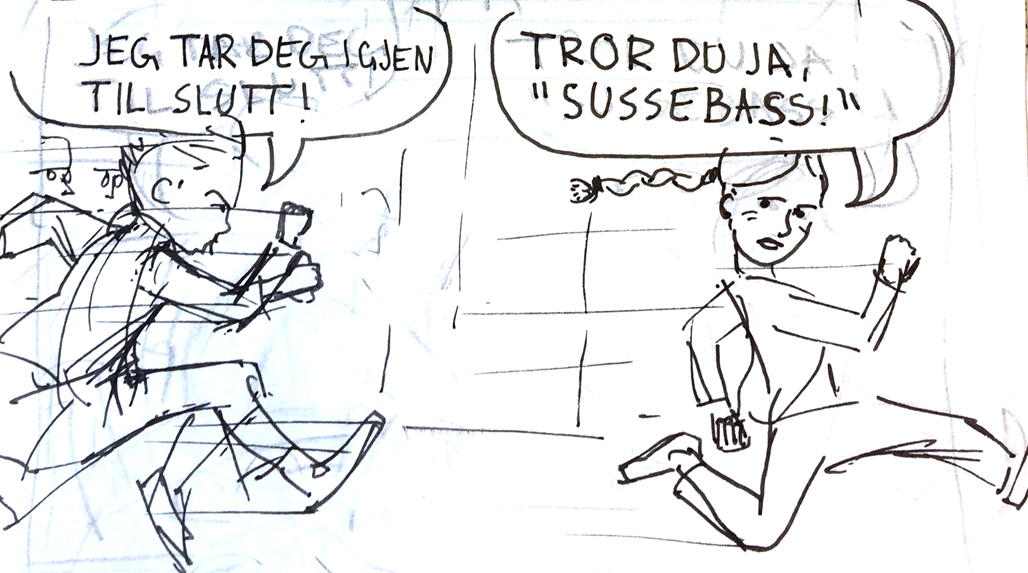 JEG TAR DEG IGJEN
TIL SLUTT!
TROR DU JA,
"SUSSEBASS!"